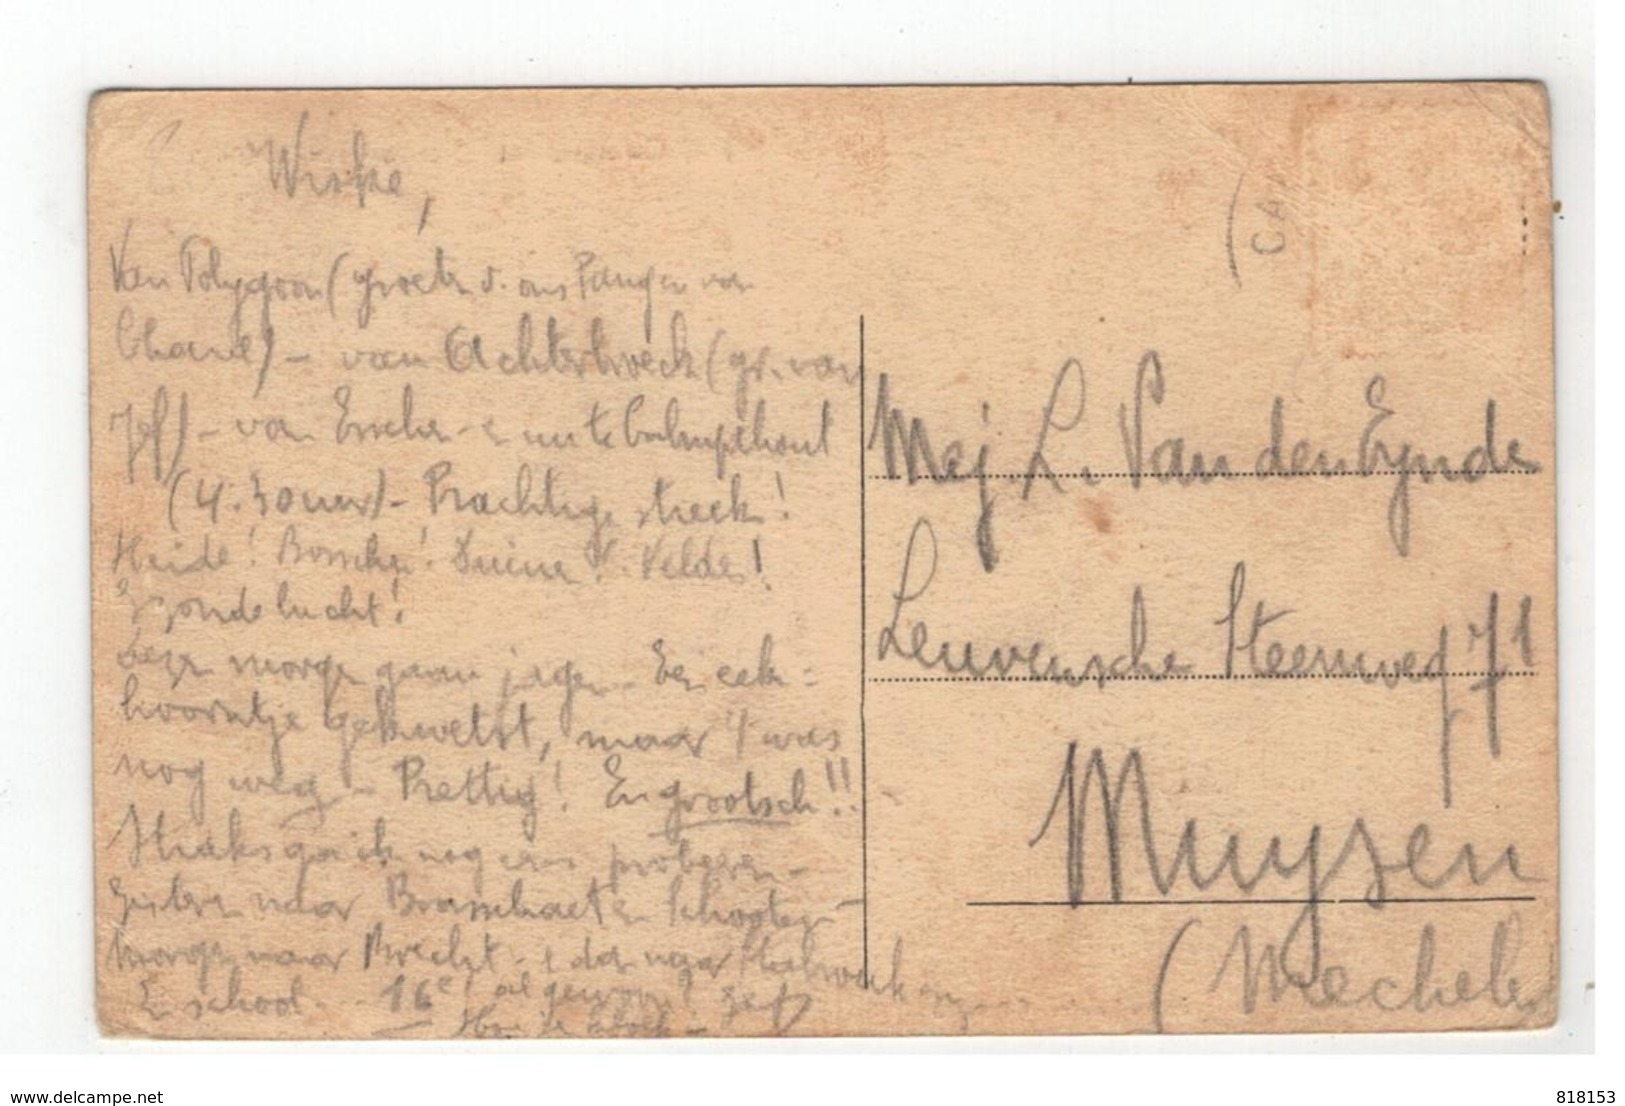 Wiske,
Van Polygoon (groeten v. ons van
) - van Achterbroeck (gr. van
Jef) - van Esschen - uit Calmpthout
(4.30 uur) - Prachtige streek!
Heide! Bosschen! Duinen! Velden!
Gezonde lucht!
morgen gaan jagen - Een eek-
hoorntje gekwetst, maar 't was
nog weg - Prettig! En grootsch!!
Straks ga ik nog eens proberen -
Gisteren naar Brasschaet en Schooten -
Morgen naar Brecht - en dan naar
En school - 16e
Mej. L. Van den Eynde
Leuvensche Steenweg 71
Muysen
(Mechelen
CA
www.delcampe.net
818153